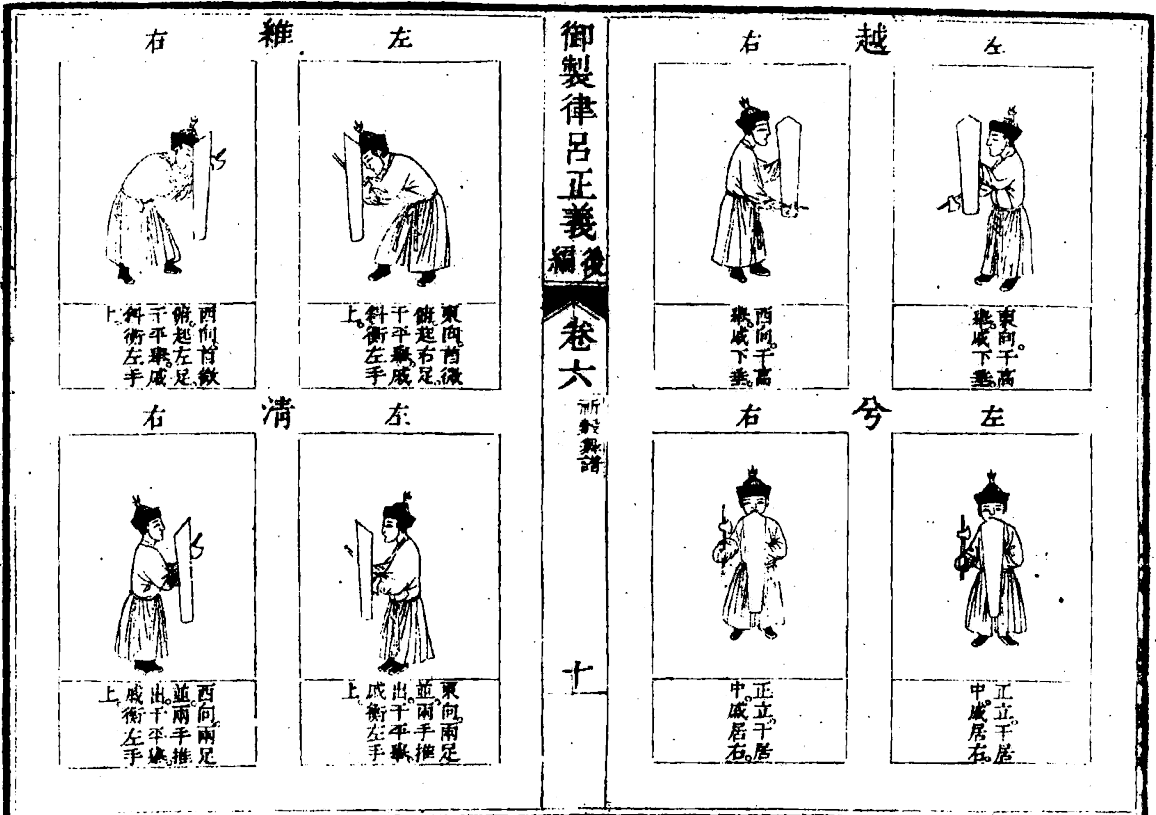 越
左
東向。干高
舉。戚下垂。
右
西向。干高
舉。戚下垂。
兮
左
正立。干居
中。戚居右。
右
正立。干居
中。戚居右。
御製律呂正義後編
卷六
新製舞譜
十
左
東向。首微
俯。起右足。
干平舉。戚
斜衡左手
上。
右
西向。首微
俯。起左足。
干平舉。戚
斜衡左手
上。
清
左
東向。兩足
並。兩手推
出。干平舉。
戚衡左手
上。
右
西向。兩足
並。兩手推
出。干平舉。
戚衡左手
上。